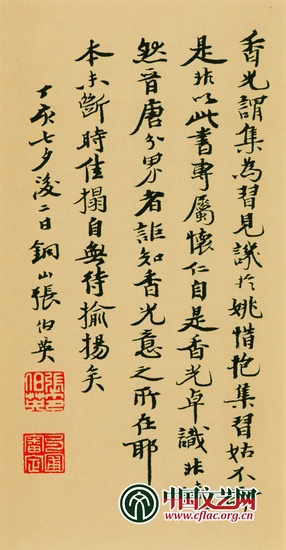 香光謂集為習見譏於姚惜抱集習姑不
是非以此書專屬懷仁自是香光卓識非
然晉唐分界者詎知香光意之所在耶
本未斷時佳搨自無待揄揚矣
丁亥七夕後二日銅山張伯英
中国文艺网
www.cflac.org.cn